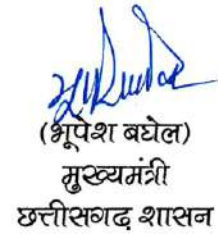 (भूपेश बघेल)
मुख्यमंत्री
छत्तीसगढ़ शासन